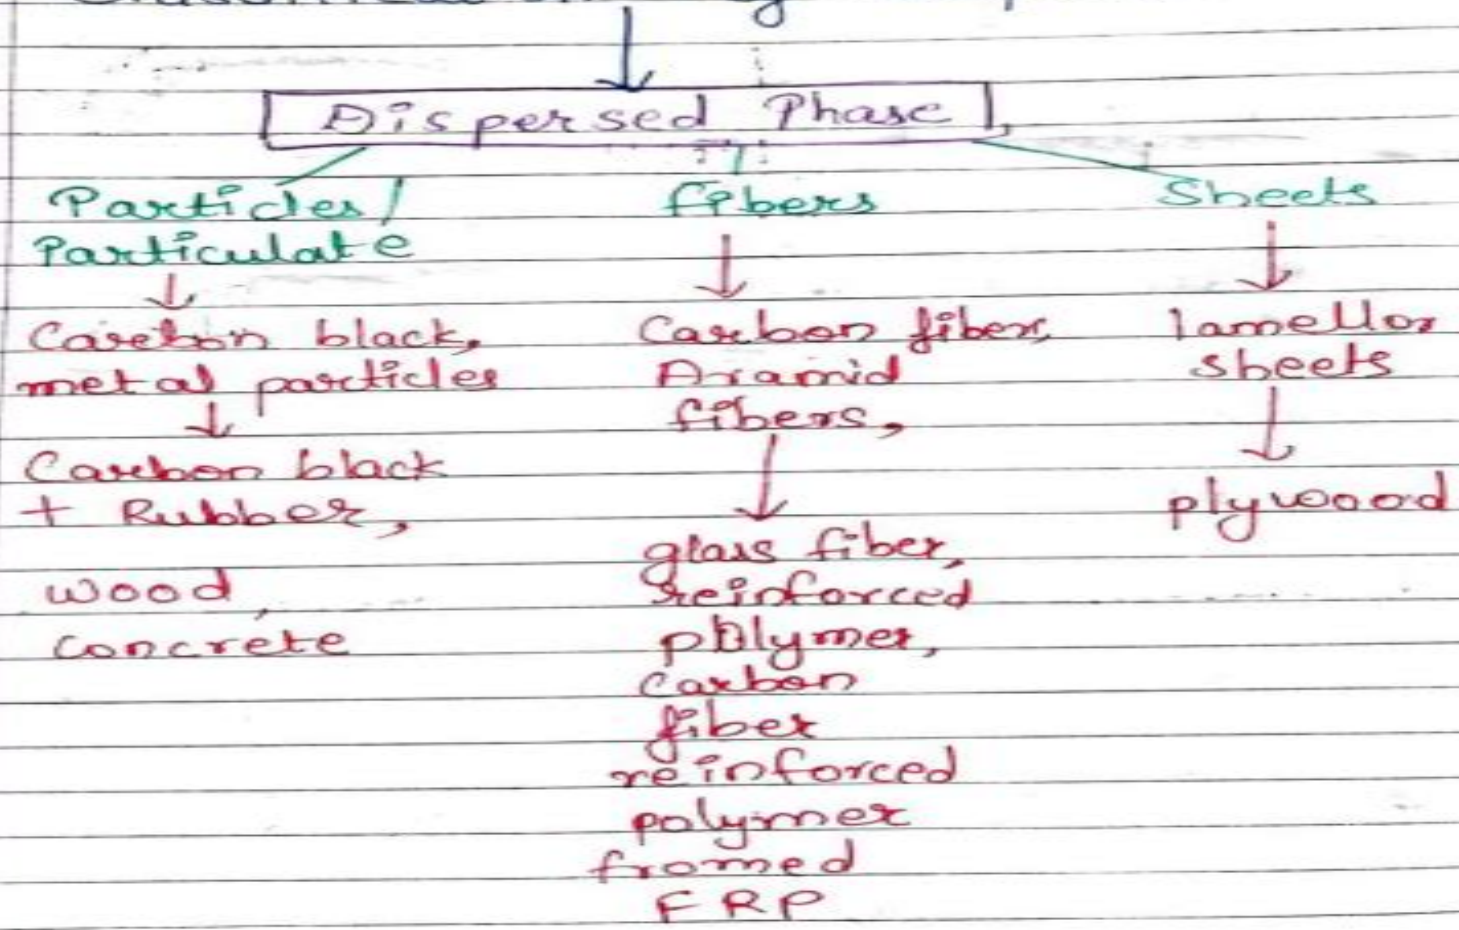 Dispersed Phase
Particles/
Particulate
Carbon black,
metal particles
Carbon black
+ Rubber,
wood,
concrete
fibers
Carbon fiber,
Aramid
fibers,
glass fiber,
reinforced
polymer,
carbon
fiber
reinforced
polymer
fromed
FRP
Sheets
lamellor
sheets
plywood